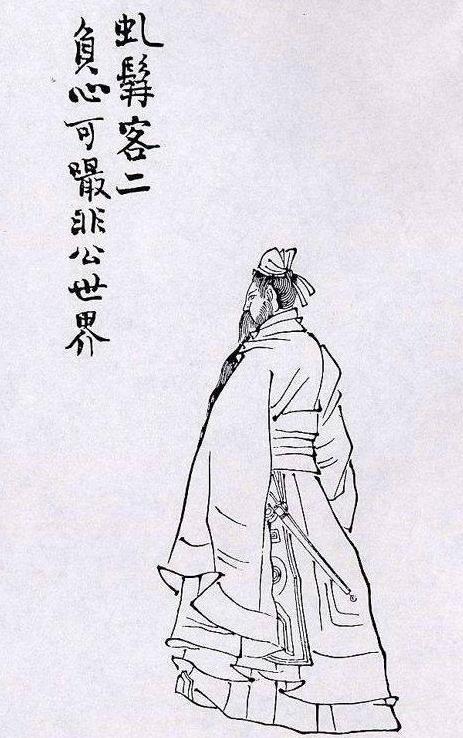 虬髯客二
負心可嘬非公世界